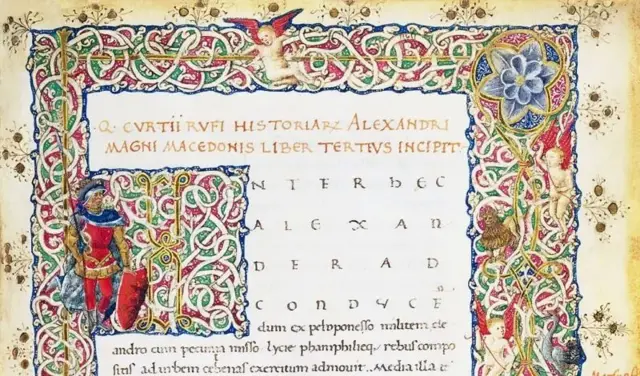 Q. CVRTII RVFI HISTORIARꝜ ALEXANDRI
MAGNI MACEDONIS LIBER TERTIVS INCIPIT
INTER HEC
ALEXAN
DER AD
CONDVCE
dum ex peloponesso militem cle
andro cum pecunia misso lycie phamphilieq; rebus compo
sitis ad urbem celenas exercitum admouit. Media illa